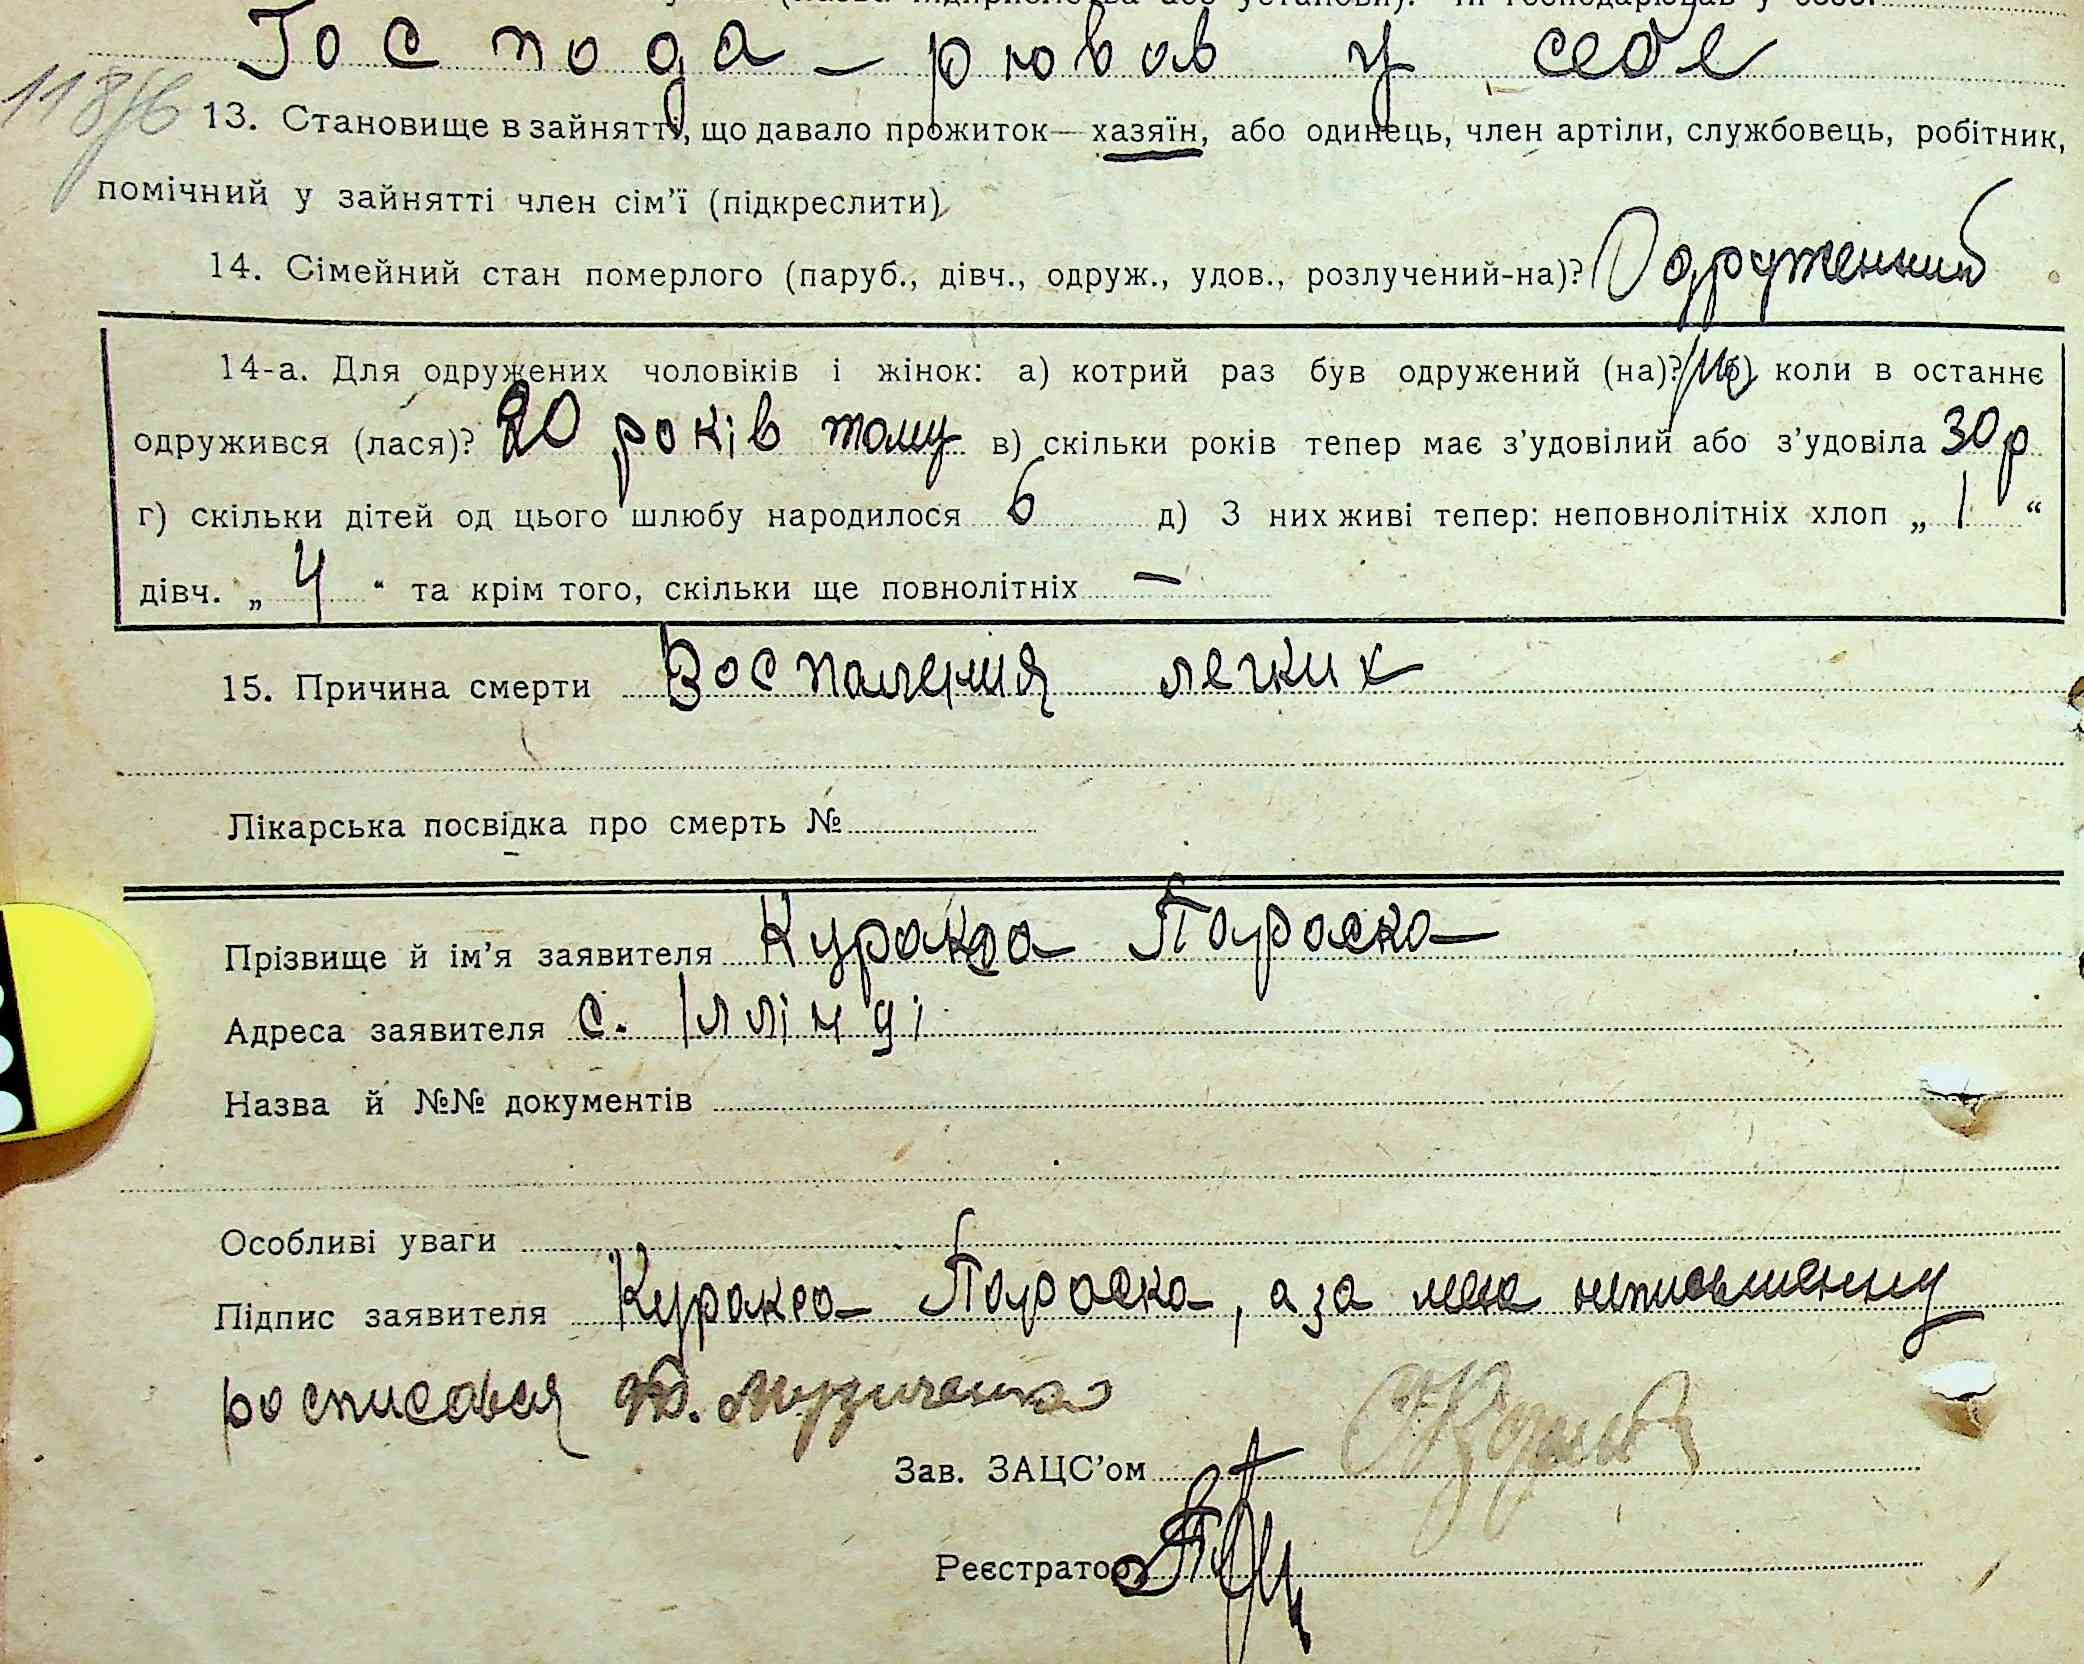 або установи). Чи господарював у себе.
Господа-рював у себе
118/б
13. Становище в зайнятті, що давало прожиток—хазяїн, або одинець, член артіли, службовець, робітник,
помічний у зайнятті член сім'ї (підкреслити)
14. Сімейний стан померлого (паруб., дівч., одруж., удов., розлучений-на)? Одруженний
14-а. Для одружених чоловіків і жінок: а) котрий раз був одружений (на)? б) коли в останнє
одружився (лася)? 20 років тому в) скільки років тепер має з'удовілий або з'удовіла 30 р
г) скільки дітей од цього шлюбу народилося 6 д) З них живі тепер: неповнолітніх хлоп „ 1 “
дівч. „ 4 “ та крім того, скільки ще повнолітніх —
15. Причина смерти Воспаления легких
Лікарська посвідка про смерть №
Прізвище й ім'я заявителя Куракса Параска
Адреса заявителя с. Іллінці
Назва й №№ документів
Особливі уваги
Підпис заявителя Куракса Параска, а за нею неписьменну
росписався Музиченко
Зав. ЗАЦС'ом
Реєстратор